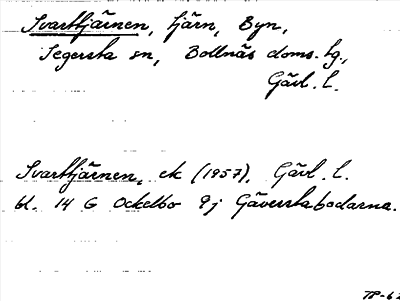 Svarttjärnen, tjärn, Byn,
Segersta sn, Bollnäs doms. tg.,
Gävl. l.
Svarttjärnen, ek (1957), Gävl. l.
bl. 14 G Ockelbo 9j Gäverstabodarna.